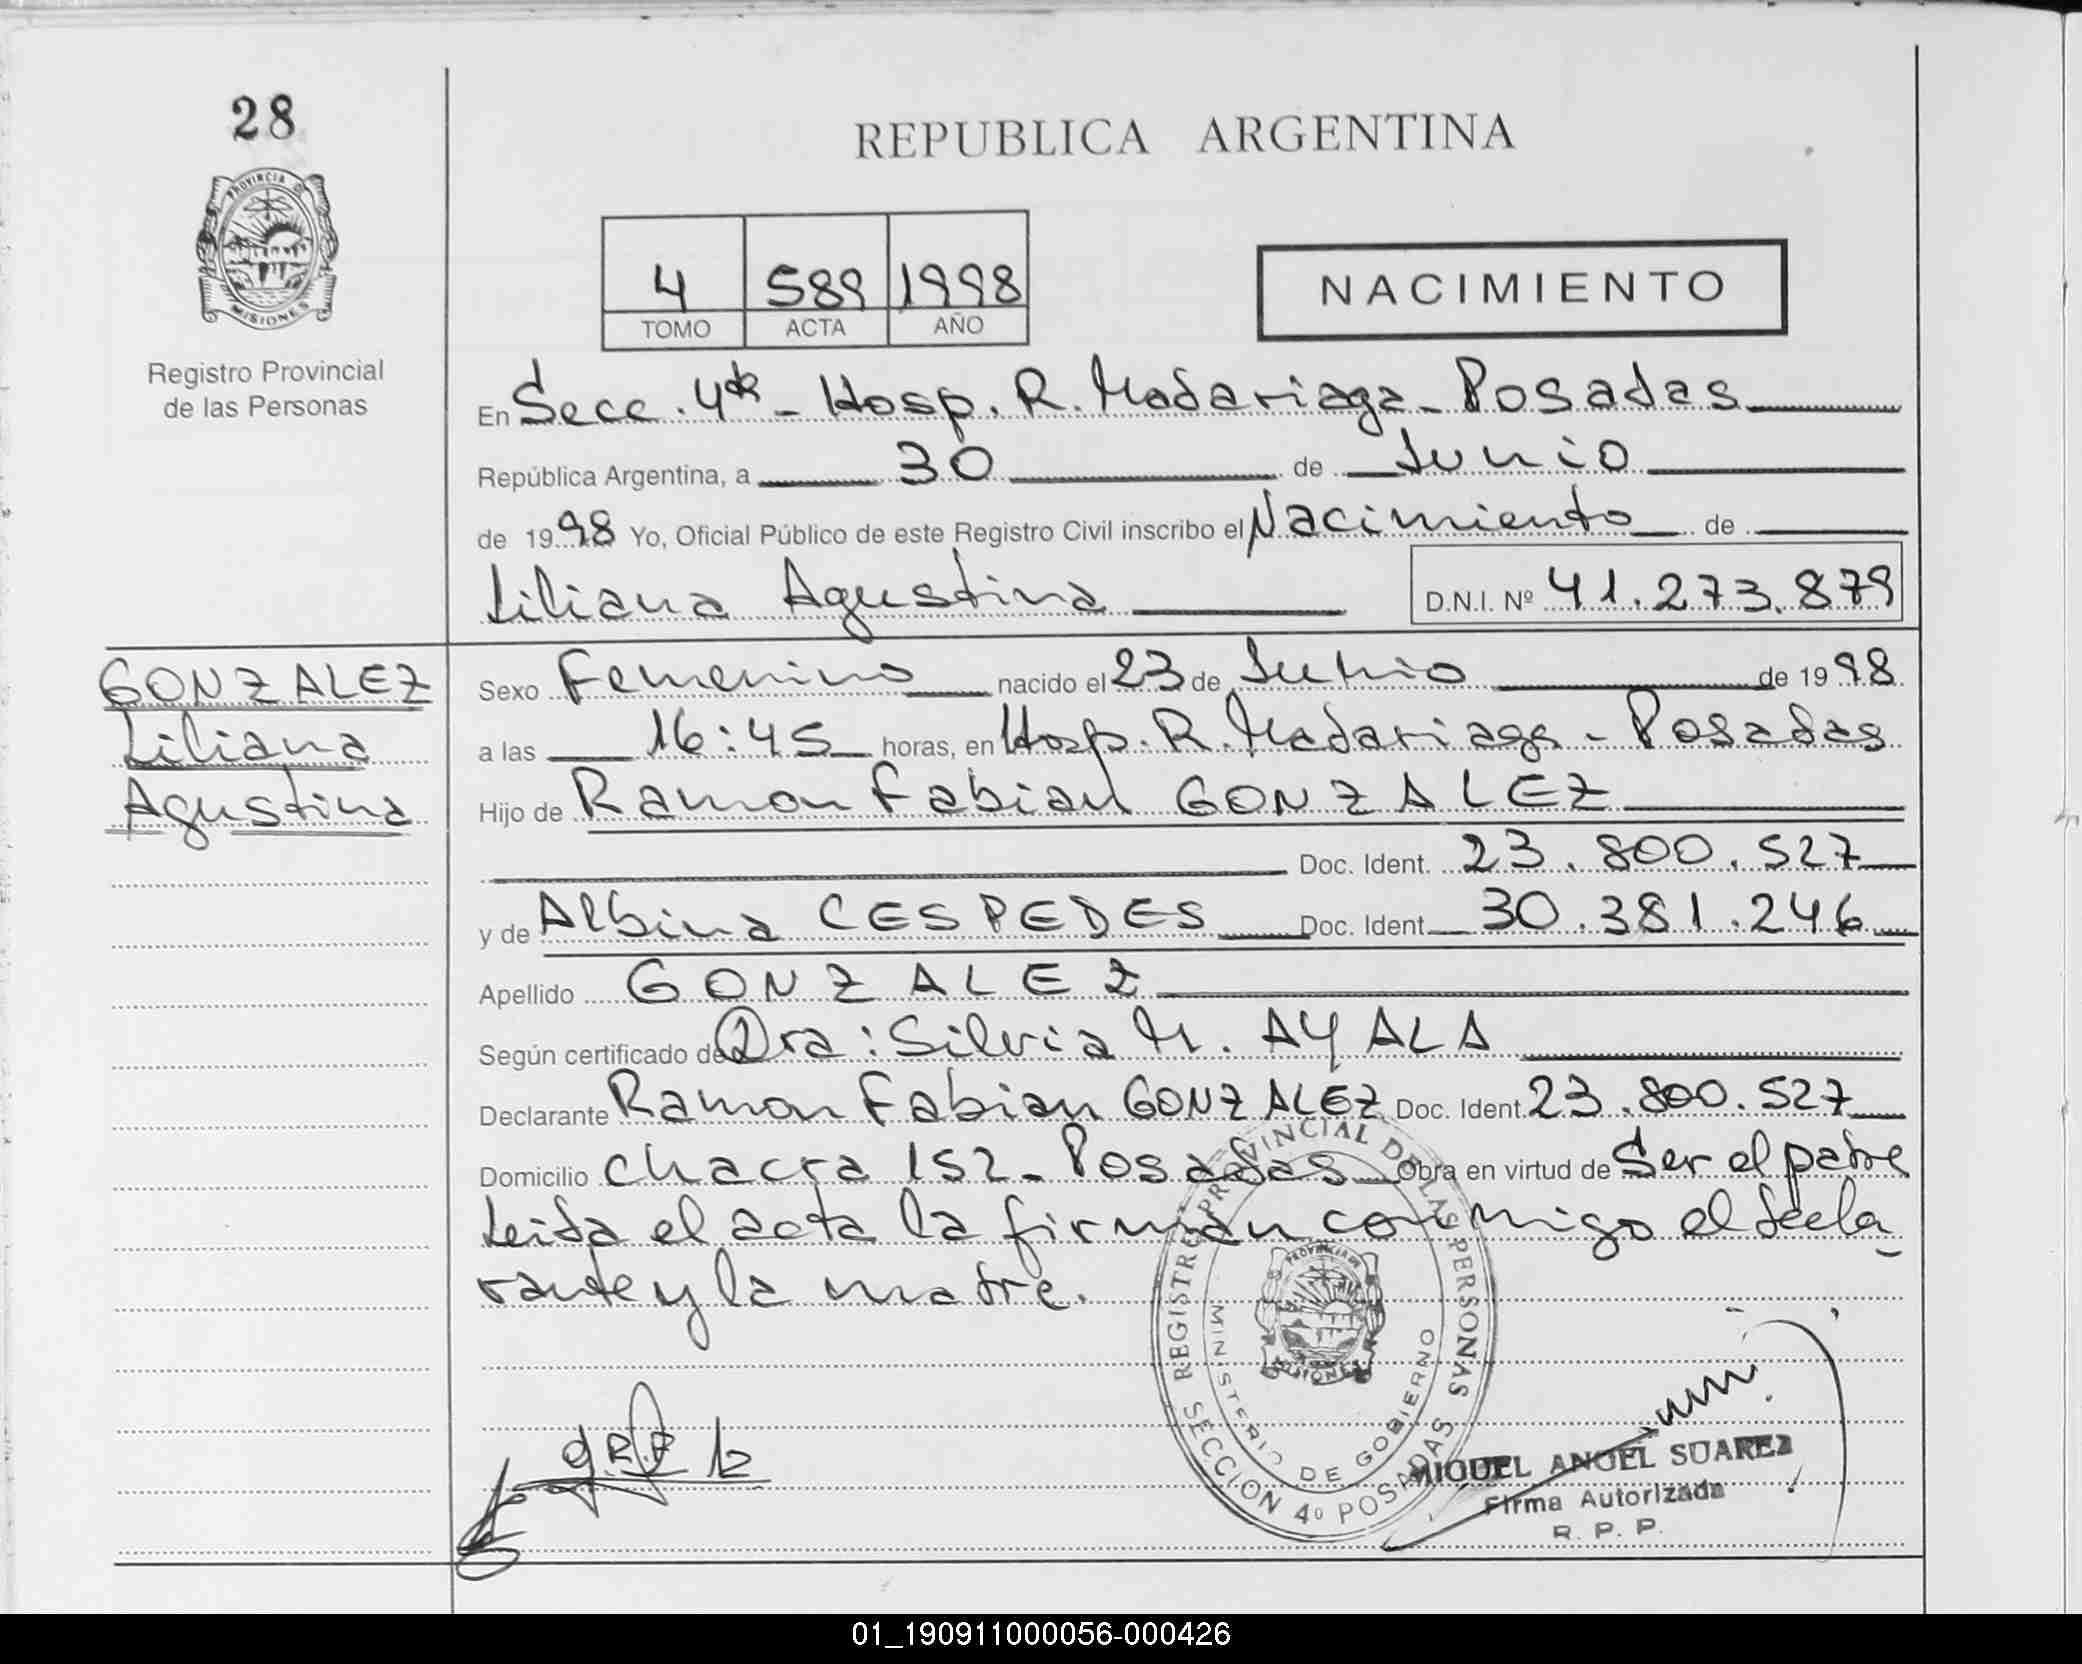 28
PROVINCIA DE
MISIONES
Registro Provincial
de las Personas
REPUBLICA ARGENTINA
4 589 1998
TOMO ACTA AÑO
NACIMIENTO
En Secc. 4ta - Hosp. R. Madariaga - Posadas
República Argentina, a 30 de Junio
de 1998 Yo, Oficial Público de este Registro Civil inscribo el Nacimiento de
Liliana Agustina D.N.I. Nº 41.273.879
GONZALEZ
Liliana
Agustina
Sexo Femenino nacido el 23 de Junio de 1998
a las 16:45 horas, en Hosp. R. Madariaga - Posadas
Hijo de Ramon Fabian GONZALEZ
Doc. Ident. 23.800.527
y de Albina CESPEDES Doc. Ident. 30.381.246
Apellido GONZALEZ
Según certificado de Dra: Silvia M. AYALA
Declarante Ramon Fabian GONZALEZ Doc. Ident. 23.800.527
Domicilio Chacra 152 - Posadas Obra en virtud de Ser el padre
Leida el acta la firman conmigo el decla_
rante y la madre.
REGISTRO PROVINCIAL DE LAS PERSONAS
MINISTERIO DE GOBIERNO
SECCION 4º POSADAS
PROVINCIA DE
MISIONES
MIGUEL ANGEL SUAREZ
Firma Autorizada
R. P. P.
01_190911000056-000426